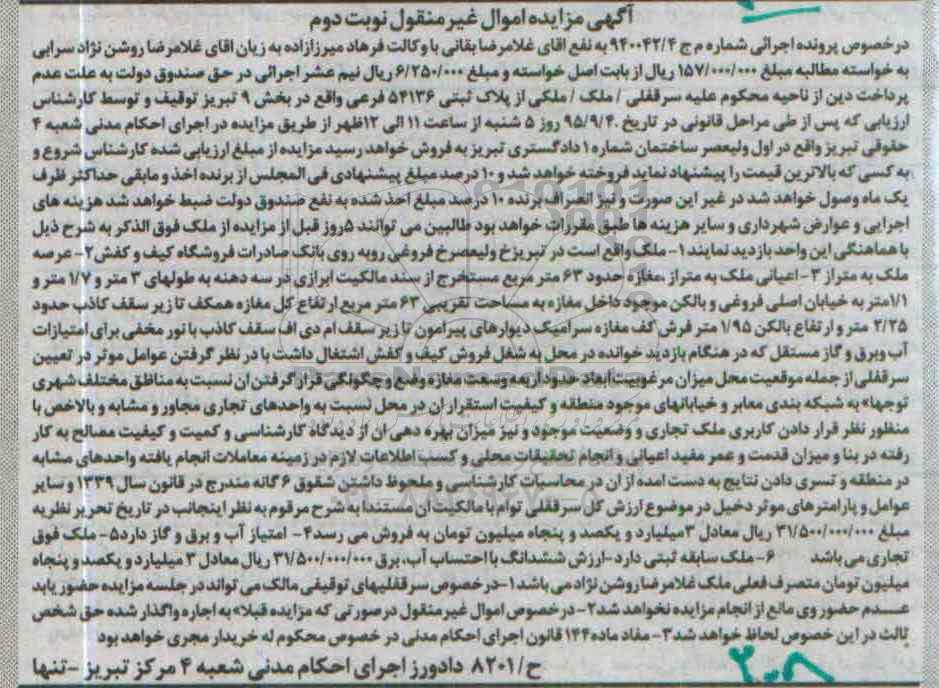 آگهی مزایده اموال غیر منقول نوبت دوم
درخصوص پرونده اجرائی شماره م ج ۹۴۰۰۴۲/۴ به نفع اقای غلامرضا بقانی با وکالت فرهاد میرزازاده به زیان اقای غلامرضا روشن نژاد سرابی
به خواسته مطالبه مبلغ ۱۵۷/۰۰۰/۰۰۰ ریال از بابت اصل خواسته و مبلغ ۶/۲۵۰/۰۰۰ ریال نیم عشر اجرائی در حق صندوق دولت به علت عدم
پرداخت دین از ناحیه محکوم علیه سرقفلی / ملک / ملکی از پلاک ثبتی ۵۴۱۳۶ فرعی واقع در بخش ۹ تبریز توقیف و توسط کارشناس
ارزیابی که پس از طی مراحل قانونی در تاریخ ۹۵/۹/۴۰ روز ۵ شنبه از ساعت ۱۱ الی ۱۲ظهر از طریق مزایده در اجرای احکام مدنی شعبه ۴
حقوقی تبریز واقع در اول ولیعصر ساختمان شماره ۱ دادگستری تبریز به فروش خواهد رسید مزایده از مبلغ ارزیابی شده کارشناس شروع و
به کسی که بالاترین قیمت را پیشنهاد نماید فروخته خواهد شد و ۱۰ درصد مبلغ پیشنهادی فی المجلس از برنده اخذ و مابقی حداکثر ظرف
یک ماه وصول خواهد شد در غیر این صورت و نیز انصراف برنده ۱۰ درصد مبلغ اخذ شده به نفع صندوق دولت ضبط خواهد شد هزینه های
اجرایی و عوارض شهرداری و سایر هزینه ها طبق مقررات خواهد بود طالبین می توانند ۵روز قبل از مزایده از ملک فوق الذکر به شرح ذیل
با هماهنگی این واحد بازدید نمایند ۱- ملک واقع است در تبریز خ ولیعصر خ فروغی روبه روی بانک صادرات فروشگاه کیف و کفش ۲- عرصه
ملک به متراژ ۳- اعیانی ملک به متراژ ،مغازه حدود ۶۳ متر مربع مستخرج از سند مالکیت ابرازی در سه دهنه به طولهای ۳ متر و ۱/۷ متر و
۱/۱متر به خیابان اصلی فروغی و بالکن موجود داخل مغازه به مساحت تقریبی ۶۳ متر مربع ارتفاع کل مغازه همکف تا زیر سقف کاذب حدود
۲/۲۵ متر و ارتفاع بالکن ۱/۹۵ متر فرش کف مغازه سرامیک دیوارهای پیرامون تا زیر سقف ام دی اف سقف کاذب با نور مخفی برای امتیازات
آب وبرق و گاز مستقل که در هنگام بازدید خوانده در محل به شغل فروش کیف و کفش اشتغال داشت با در نظر گرفتن عوامل موثر در تعیین
سرقفلی از جمله موقعیت محل میزان مرغوبیت ابعاد حدود اربعه وسعت مغازه وضع و چگونگی قرار گرفتن ان نسبت به مناطق مختلف شهری
توجها» به شبکه بندی معابر و خیابانهای موجود منطقه و کیفیت استقرار ان در محل نسبت به واحدهای تجاری مجاور و مشابه و بالاخص با
منظور نظر قرار دادن کاربری ملک تجاری و وضعیت موجود و نیز میزان بهره دهی ان از دیدگاه کارشناسی و کمیت و کیفیت مصالح به کار
رفته در بنا و میزان قدمت و عمر مفید اعیانی و انجام تحقیقات محلی و کسب اطلاعات لازم در زمینه معاملات انجام یافته واحدهای مشابه
در منطقه و تسری دادن نتایج به دست امده از ان در محاسبات کارشناسی و ملحوظ داشتن شقوق ۶ گانه مندرج در قانون سال ۱۳۳۹ و سایر
عوامل و پارامترهای موثر دخیل در موضوع ارزش کل سرقفلی توام با مالکیت ان مستندا به شرح مرقوم به نظر اینجانب در تاریخ تحریر نظریه
مبلغ ۳۱/۵۰۰/۰۰۰/۰۰۰ ریال معادل ۳میلیارد و یکصد و پنجاه میلیون تومان به فروش می رسد ۴- امتیاز آب و برق و گاز دارد ۵- ملک فوق
تجاری می باشد ۶- ملک سابقه ثبتی دارد -ارزش ششدانگ با احتساب آب، برق ۳۱/۵۰۰/۰۰۰/۰۰۰ ریال معادل ۳ میلیارد و یکصد و پنجاه
میلیون تومان متصرف فعلی ملک غلامرضا روشن نژاد می باشد ۱-درخصوص سرقفلیهای توقیفی مالک می تواند در جلسه مزایده حضور یابد
عدم حضور وی مانع از انجام مزایده نخواهد شد ۲- درخصوص اموال غیر منقول درصورتی که مزایده قبلا» به اجاره واگذار شده حق شخص
ثالث در این خصوص لحاظ خواهد شد ۳- مفاد ماده ۱۴۴ قانون اجرای احکام مدنی در خصوص محکوم له خریدار مجری خواهد بود
ح/۸۲۰۱ دادورز اجرای احکام مدنی شعبه ۴ مرکز تبریز -تنها
۳۰۰۸